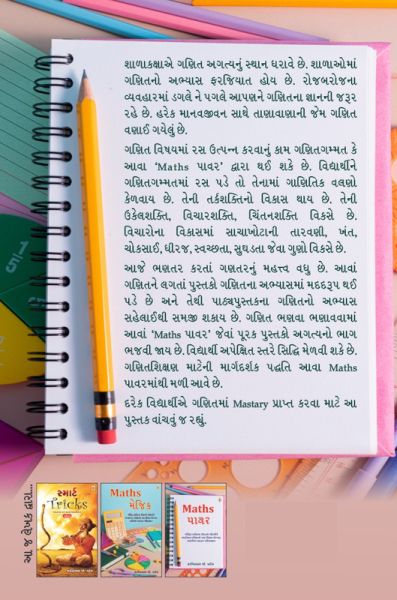 શાળાકક્ષાએ ગણિત અગત્યનું સ્થાન ધરાવે છે. શાળાઓમાં
ગણિતનો અભ્યાસ ફરજિયાત હોય છે. રોજબરોજના
વ્યવહારમાં ડગલે ને પગલે આપણને ગણિતના જ્ઞાનની જરૂર
રહે છે. હરેક માનવજીવન સાથે તાણાવાણાની જેમ ગણિત
વણાઈ ગયેલું છે.
ગણિત વિષયમાં રસ ઉત્પન્ન કરવાનું કામ ગણિતગમ્મત કે
આવા ‘Maths પાવર’ દ્વારા થઈ શકે છે. વિદ્યાર્થીને
ગણિતગમ્મતમાં રસ પડે તો તેનામાં ગાણિતિક વલણો
કેળવાય છે. તેની તર્કશક્તિનો વિકાસ થાય છે. તેની
ઉકેલશક્તિ, વિચારશક્તિ, ચિંતનશક્તિ વિકસે છે.
વિચારોના વિકાસમાં સાચાખોટાની તારવણી, ખંત,
ચોકસાઈ, ધીરજ, સ્વચ્છતા, સુઘડતા જેવા ગુણો વિકસે છે.
આજે ભણતર કરતાં ગણતરનું મહત્ત્વ વધુ છે. આવાં
ગણિતને લગતાં પુસ્તકો ગણિતના અભ્યાસમાં મદદરૂપ થઈ
પડે છે અને તેથી પાઠ્યપુસ્તકના ગણિતનો અભ્યાસ
સહેલાઈથી સમજી શકાય છે. ગણિત ભણવા ભણાવવામાં
આવાં ‘Maths પાવર’ જેવાં પૂરક પુસ્તકો અગત્યનો ભાગ
ભજવી જાય છે. વિદ્યાર્થી અપેક્ષિત સ્તરે સિદ્ધિ મેળવી શકે છે.
ગણિતશિક્ષણ માટેની માર્ગદર્શક પદ્ધતિ આવા Maths
પાવરમાંથી મળી આવે છે.
દરેક વિદ્યાર્થીએ ગણિતમાં Mastary પ્રાપ્ત કરવા માટે આ
પુસ્તક વાંચવું જ રહ્યું.
આ જ લેખક દ્વારા...
સ્માર્ટ
Tricks
Maths
મેજિક
Maths
પાવર
1/5